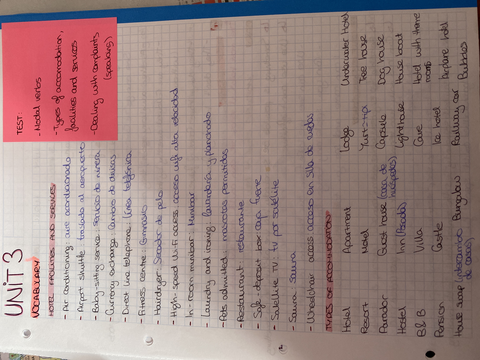 UNIT 3
TEST:
- Modal verbs
- Types of accomodation, facilities and services
- Dealing with complaints (speaking)
VOCABULARY
HOTEL FACILITIES AND SERVICES
- Air conditioning aire acondicionado
- Airport shuttle traslado al aeropuerto
- Baby-sitting service Servicio de niñera
- Currency exchange Cambio de divisas
- Direct line telephone Línea telefónica
- Fitness centre Gimnasio
- Hairdryer Secador de pelo
- High-speed Wi-Fi access acceso wifi alta velocidad
- In-room minibar Minibar
- Laundry and ironing lavandería y planchado
- Pets admitted mascotas permitidas
- Restaurant restaurante
- Safe deposit box caja fuerte
- Satellite TV tv por satélite
- Sauna Sauna
- Wheelchair access acceso en silla de ruedas
TYPES OF ACCOMMODATION
Hotel Apartment Lodge Underwater hotel
Resort Motel Yurt-tipi Tree house
Parador Guest house (casa de huéspedes) Capsule Dog house
Hostel Inn (Posada) Lighthouse House boat
B&B Villa Cave Hotel with theme rooms
Pension Castle Ice hotel Airplane hotel
House swap (intercambio de casas) Bungalow Railway car Bubbles